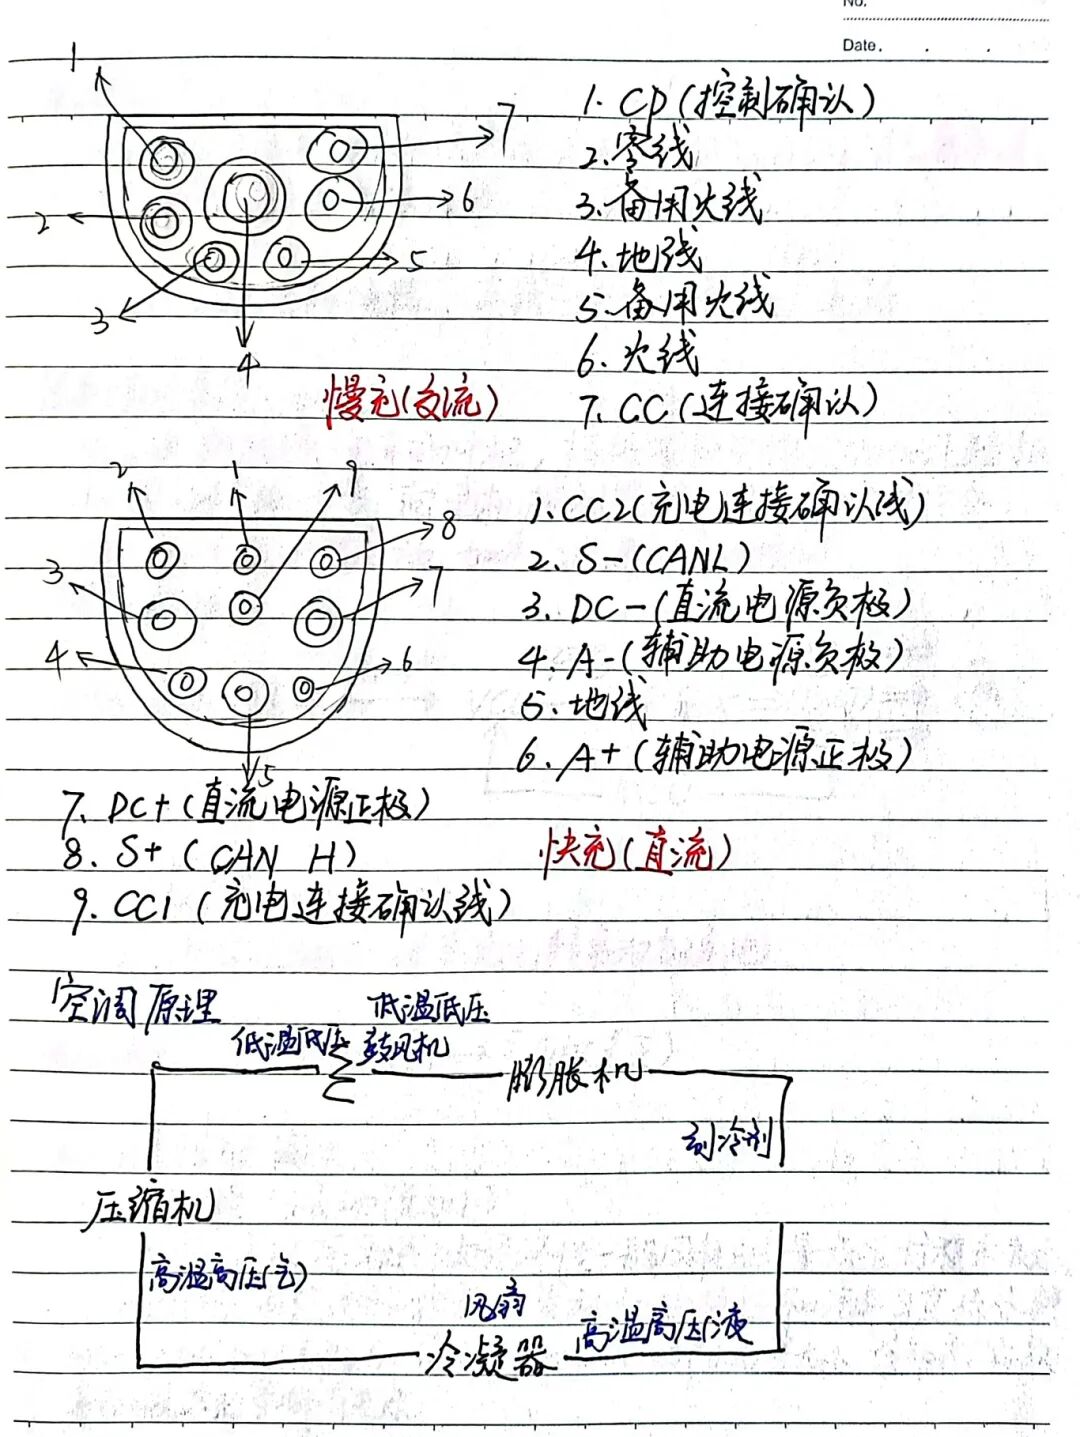 No.
Date.
1
7
2
6
3
5
4
1. CP(控制确认)
2.零线
3.备用火线
4.地线
5.备用火线
6.火线
7.CC(连接确认)
慢充(交流)
2
1
9
8
3
7
4
6
5
1.CC2(充电连接确认线)
2. S-(CANL)
3. DC-(直流电源负极)
4. A-(辅助电源负极)
5.地线
6. A+(辅助电源正极)
7. DC+(直流电源正极)
8. S+(CAN H)
快充(直流)
9. CC1(充电连接确认线)
空调原理
低温低压
低温低压
鼓风机
膨胀机
制冷剂
压缩机
高温高压(气)
风扇
高温高压液
冷凝器